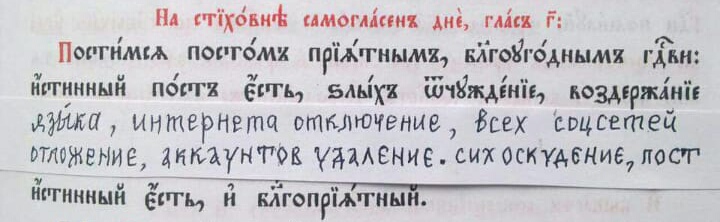 На стїхо́внѣ самогла́сенъ днѐ, гла́съ г҃:
Пости́мсѧ посто́мъ прїѧ́тнымъ, бл҃гоꙋго́днымъ гдⷭ҇ви:
и҆́стинный по́стъ є҆́сть, ѕлы́хъ ѿчꙋжде́нїе, воздержа́нїе
ꙗзы́ка, интернета отключение, всех соцсетей
отложение, аккаунтов удаление. сих оскудение, пост
и҆́стинный є҆́сть, и҆ бл҃гопрїѧ́тный.